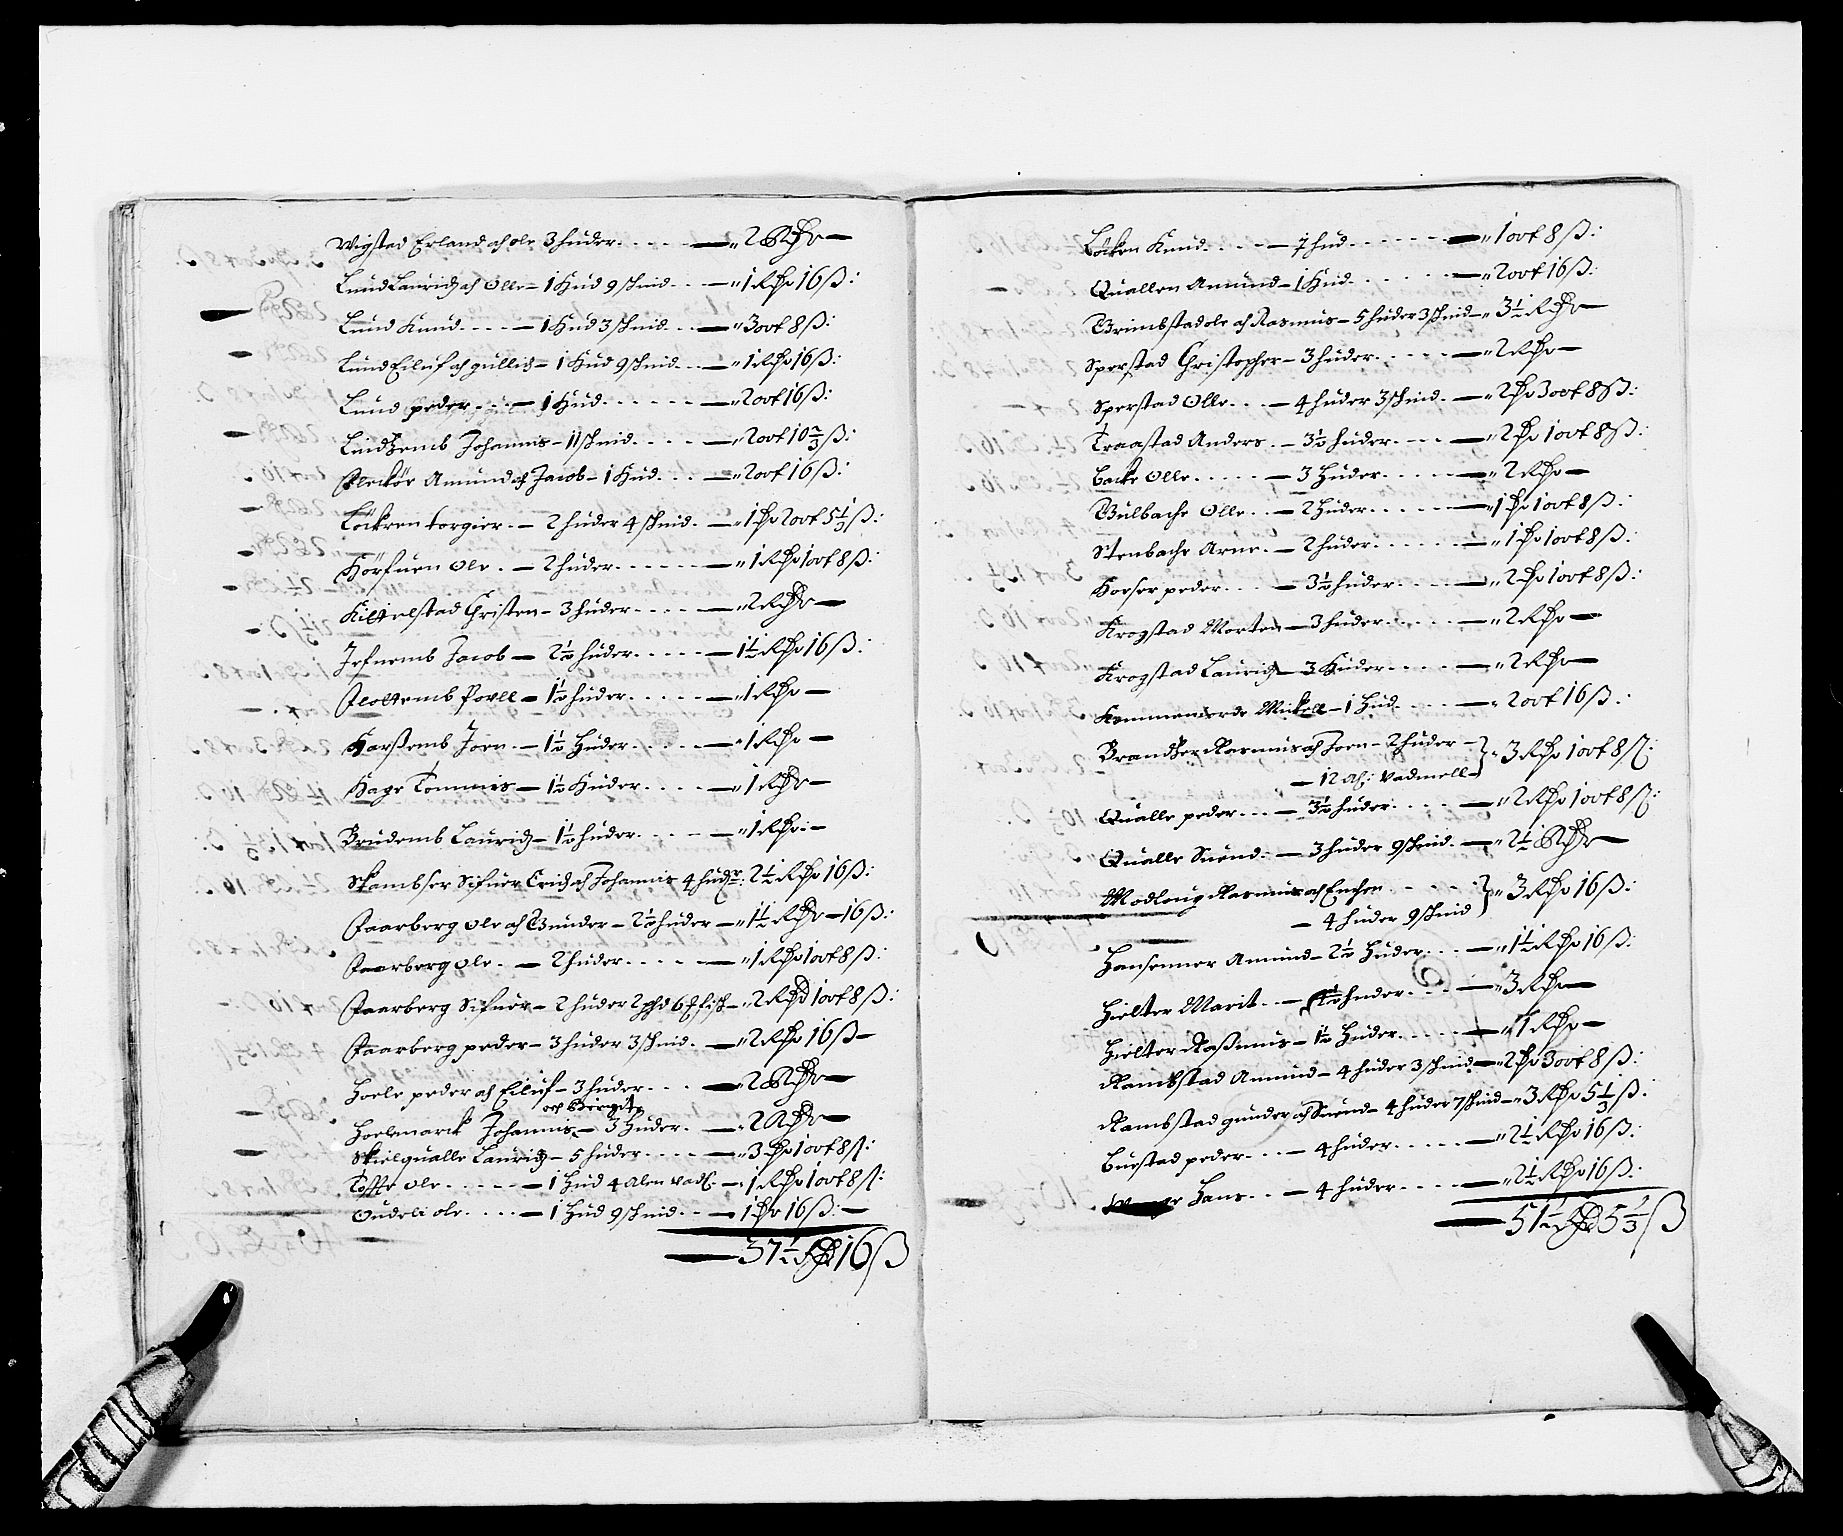 Wigstad Erland och ole 3 huder - - - - - 2 Rdr -
Lund Lauridz och Olle - 1 Hud 9 skind - - - 1 Rdr 16 ß:
Lund Knud - - - - 1 Hud 3 skind - - - 3 ort 8 ß:
Lund Eiluf och gullich - 1 Hud 9 skind - - - 1 Rdr 16 ß:
Lund peder - - - 1 Hud - - - - - - 2 ort 16 ß:
Lindhemb Johannis - 11 skind - - - - 2 ort 10 2/3 ß:
Amund och Jacob - 1 Hud - - - 2 ort 16 ß:
Löckren torgier - - 2 huder 4 skind - - 1 dr 2 ort 5 1/3 ß:
Hörfuen Ole - - 2 huder - - - - - - 1 Rdr 1 ort 8 ß:
Kittelstad Christen - 3 huder - - - - 2 Rdr -
Jefnemb Jacob - 2 1/2 huder - - - - - 1 1/2 Rdr 16 ß:
Flottemb Povell - 1 1/2 huder - - - - - 1 Rdr -
Harßemb Joen - - 1 1/2 Huder - - - - - 1 Rdr -
Hage Tommes - 1 1/2 Huder - - - - - 1 Rdr -
Brudemb Lauridz - 1 1/2 huder - - - - - 1 Rdr -
Skambser Sifuer Erich och Johannis 4 hudr: 2 1/2 Rdr 16 ß:
Faarberg Ole och Gunder - 2 1/2 huder - 1 1/2 Rdr - 16 ß:
Faarberg Ole - - 2 huder - - - - - - 1 Rdr 1 ort 8 ß:
Faarberg Sifuer - 2 huder 2 fisk - 2 Rd 1 ort 8 ß:
Faarberg peder - 3 huder 3 skind - - 2 Rdr 16 ß -
Hoele peder och Eiluf - 3 huder - - - 2 Rdr -
och Birgite
Hoelmarck Johannis - 3 Huder - - 2 Rdr -
Skielqualle Lauridz - 5 huder - - - - 3 dr 1 ort 8 ß:
Toffte Ole - - - - - 1 Hud 4 alen vadl - 1 Rdr 1 ort 8 ß:
Oudeli ole - - - - 1 Hud 9 skind - - - 1 dr 16 ß: -
37 1/2 Rd 16 ß
Löken Knud - - - - hud - - - - - - 1 ort 8 ß:
Quallen Amund - 1 Hud - - - - - - 2 ort 16 ß:
Brimbstad ole och Rasmus - 5 huder 3 skind - 3 1/2 Rdr -
Sperstad Christopher - 3 huder - - - - - 2 Rdr -
Sperstad Olle - - - 4 huder 3 skind - - 2 dr 3 ort 8 ß:
Traastad Anders - - 3 1/2 huder - - - - 2 dr 1 ort 8 ß:
Backe Olle - - - - - 3 Huder - - - - - - 2 Rdr -
Bulbache Olle - - - 2 Huder - - - - - - 1 dr 1 ort 8 ß:
Stenbache Arne - - 2 huder - - - - - - 1 dr 1 ort 8 ß:
Korser peder - - - - 3 1/2 huder - - - - 2 dr 1 ort 8 ß:
Krogstad Morten - 3 huder - - - - - - 2 Rdr -
Krogstad Lauridz - 3 Huder - - - - - 2 Rdr -
Mickell - 1 Hud - - - - 2 ort 16 ß:
Brandher Rasmus och Joen - 2 huder - } 3 Rdr 1 ort 8 ß:
- 12 al: vadmell -
Qualle peder - - - 3 1/2 huder - - - - 2 Rdr 1 ort 8 ß:
Qualle Suend: - 3 huder 9 skind - - 2 1/2 Rdr -
Modloug Rasmus och - - - - } 3 Rdr 16 ß:
- 4 huder 9 skind
Hansenner Amund - 2 1/2 Huder - - - 1 1/2 Rdr 16 ß:
Hielter Marit - - - huder - - - - 3 Rdr -
Hielter Raßmus - 1 1/2 Huder - - - - - 1 Rdr -
Rambstad Amund - 4 huder 3 skind - 2 dr 3 ort 8 ß:
Rambstad gunder och Suend - 4 huder 7 skind - 3 Rdr 5 1/3 ß:
Buestad peder - - - - 4 huder - - - - - - 2 1/2 Rdr 16 ß:
Hans - - - - 4 huder - - - - - - 2 1/2 Rdr 16 ß:
51 1/2 Rd 5 1/3 ß